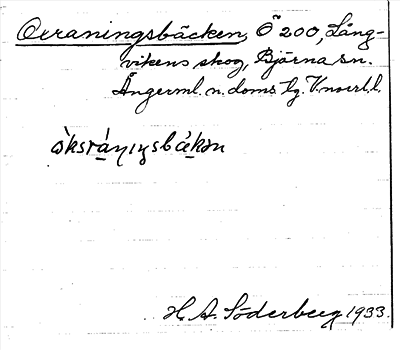 Oxraningsbäcken, Ö 200, Lång-
vikens skog, Bjärna sn.
Ångerml. n. doms. lg. V.norrl.l.
òksráŋıŋsbẹkən
H. A. Söderberg 1933.